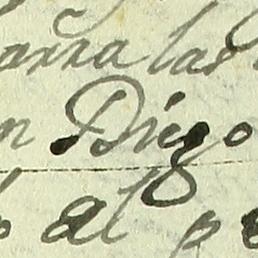 arra las
n Diego
al p